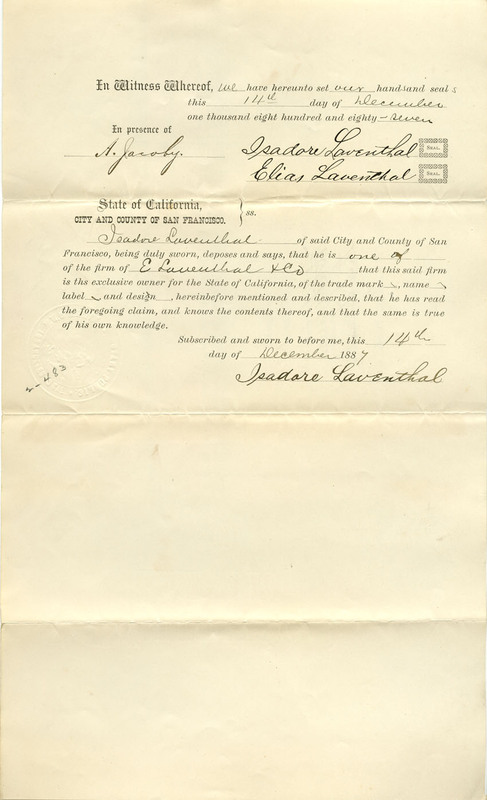 In Witness Whereof, we have hereunto set our hands and seals
this 14th day of December
one thousand eight hundred and eighty-seven
In presence of
A. Jacoby. Isadore Laventhal SEAL.
Elias Laventhal SEAL.
State of California,
CITY AND COUNTY OF SAN FRANCISCO. } ss.
Isadore Laventhal of said City and County of San
Francisco, being duly sworn, deposes and says, that he is one of
of the firm of E Laventhal & Co that this said firm
is ths exclusive owner for the State of California, of the trade mark, name
label and design, hereinbefore mentioned and described, that he has read
the foregoing claim, and knows the contents thereof, and that the same is true
of his own knowledge.
Subscribed and sworn to before me, this 14th
day of December 1887
Isadore Laventhal